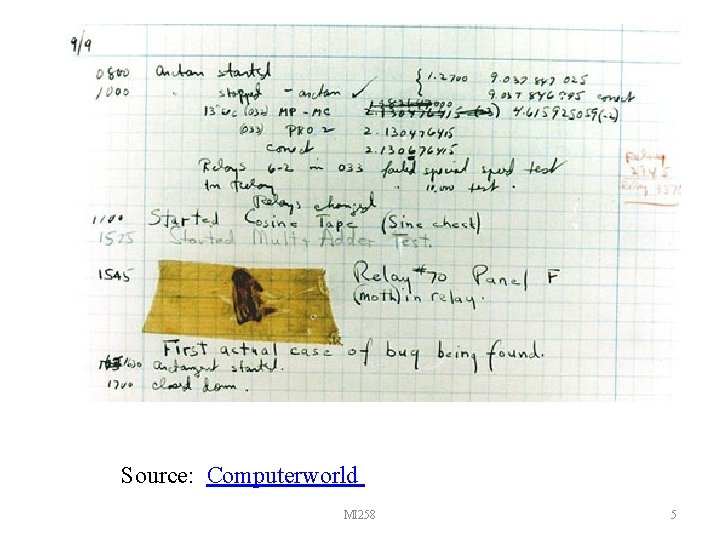 9/9
0800 antan started
1000 " stopped - antan ✓ { 1.2700 9.037 847 025
9.037 846 995 correct
13"uc (032) MP - MC 2.130476415 (-3) 4.615925059(-2)
(033) PRO 2 2.130476415
correct 2.130676415
Relays 6-2 in 033 failed special speed test
in relay " 11,000 test.
Relays changed
Relay
2145
Relay 3370
1100 Started Cosine Tape (Sine check)
1525 Started Mult + Adder Test.
1545 Relay #70 Panel F
(moth) in relay.
First actual case of bug being found.
1630 antangent started.
1700 closed down.
Source: Computerworld
MI258
5